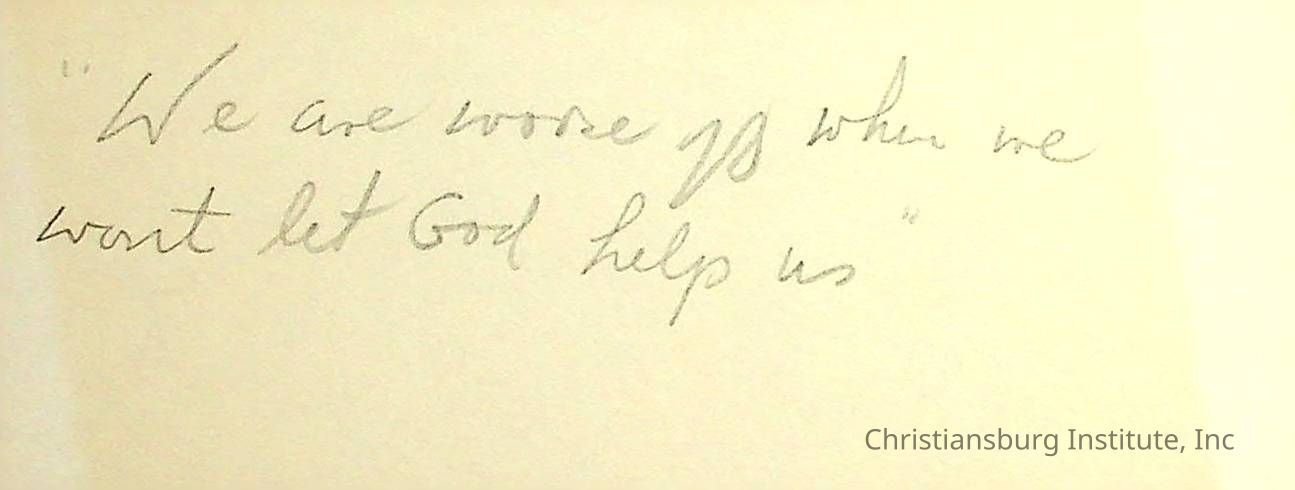 "We are worse off when we
wont let God help us"
Christiansburg Institute, Inc